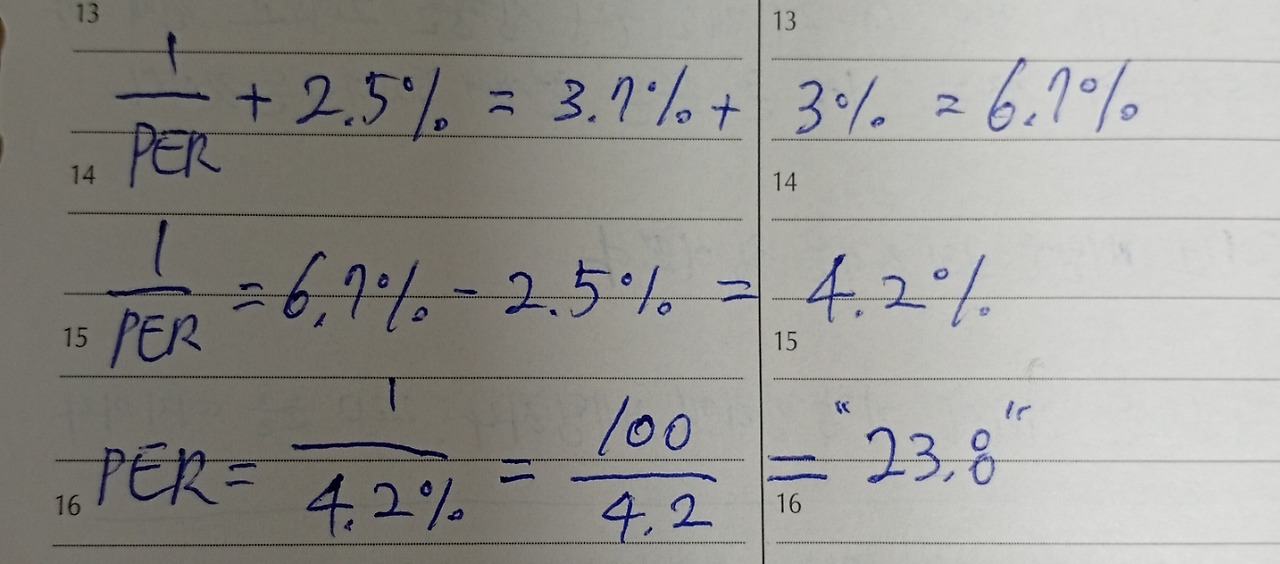 13 13
1/PER + 2.5% = 3.7% + 3% = 6.7%
14 14
1/PER = 6.7% - 2.5% = 4.2%
15 15
PER = 1/4.2% = 100/4.2 = "23.8"
16 16